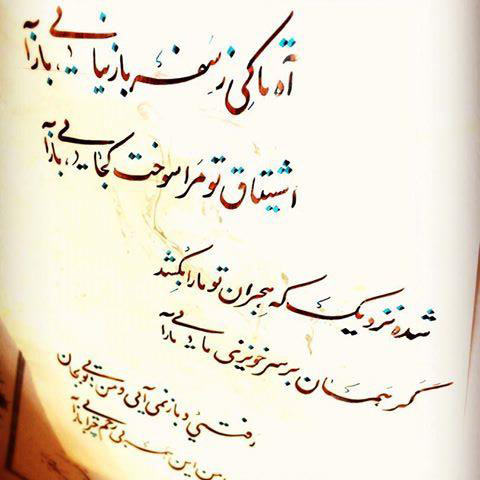 آه تا کی ز سفر باز نیائی، بازآ
اشتیاق تو مرا سوخت کجایی، بازآ
شده نزدیک که هجران تو ما را بکشد
گر همان بر سر خونریزی مایی بازآ
رفتی و باز نمی آیی و من بی تو بجان
من این همه بی رحم چرا بازآ